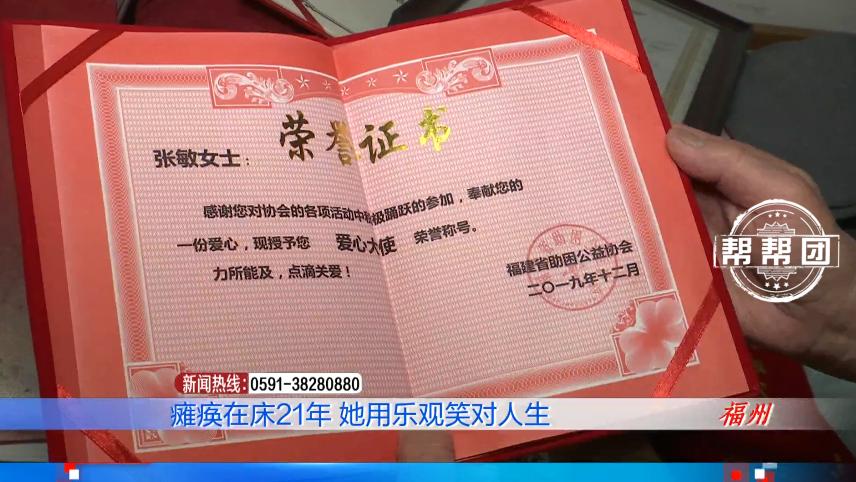 荣誉证书
张敏女士：
感谢您对协会的各项活动中积极踊跃的参加，奉献您的
一份爱心，现授予您 爱心大使 荣誉称号。
力所能及，点滴关爱！
福建省助困公益协会
二〇一九年十二月
帮帮团
新闻热线:0591-38280880
瘫痪在床21年 她用乐观笑对人生
福州